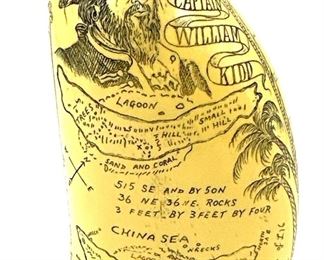 CAPTAIN
WILLIAM
KIDD
LAGOON
TREES
SMALL
HILL
HILL
SAND AND CORAL
N E
515 SE AND BY 50N
36 NE 36 NE. ROCKS
3 FEET BY 3 FEET BY FOUR
CHINA SEA
WRECKS
LAGOON